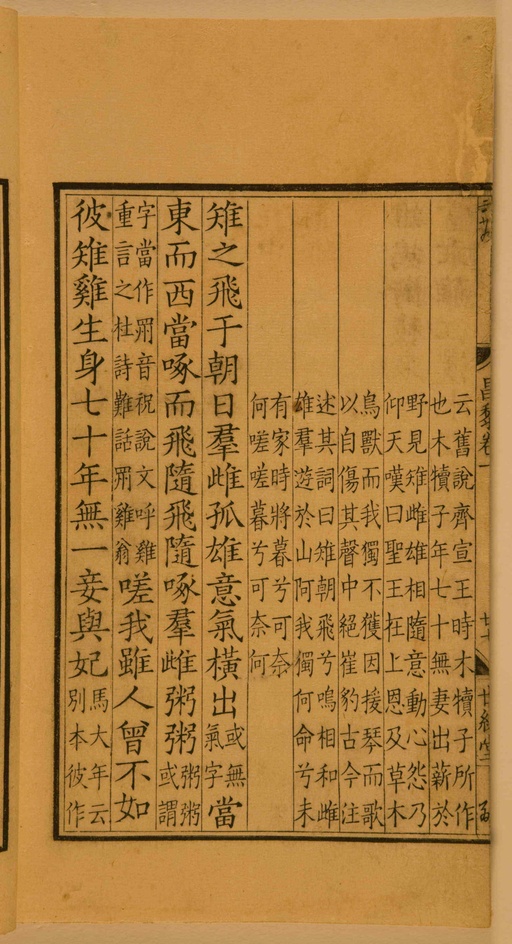 昌黎卷一
云舊說齊宣王時木犢子所作
也木犢子年七十無妻出薪於
野見雉雌雄相隨意動心怨乃
仰天嘆曰聖王在上恩及草木
鳥獸而我獨不獲因援琴而歌
以自傷其聲中絕崔豹古今注
述其詞曰雉朝飛兮鳴相和雌
雄羣遊於山阿我獨何命兮未
有家時將暮兮可奈
何嗟嗟暮兮可奈何
雉之飛于朝日羣雌孤雄意氣橫出或無氣字當
東而西當啄而飛隨飛隨啄羣雌粥粥粥粥或謂
字當作喌音祝說文呼雞重言之杜詩難話喌雞翁嗟我雖人曾不如
彼雉雞生身七十年無一妾與妃馬大年云別本彼作